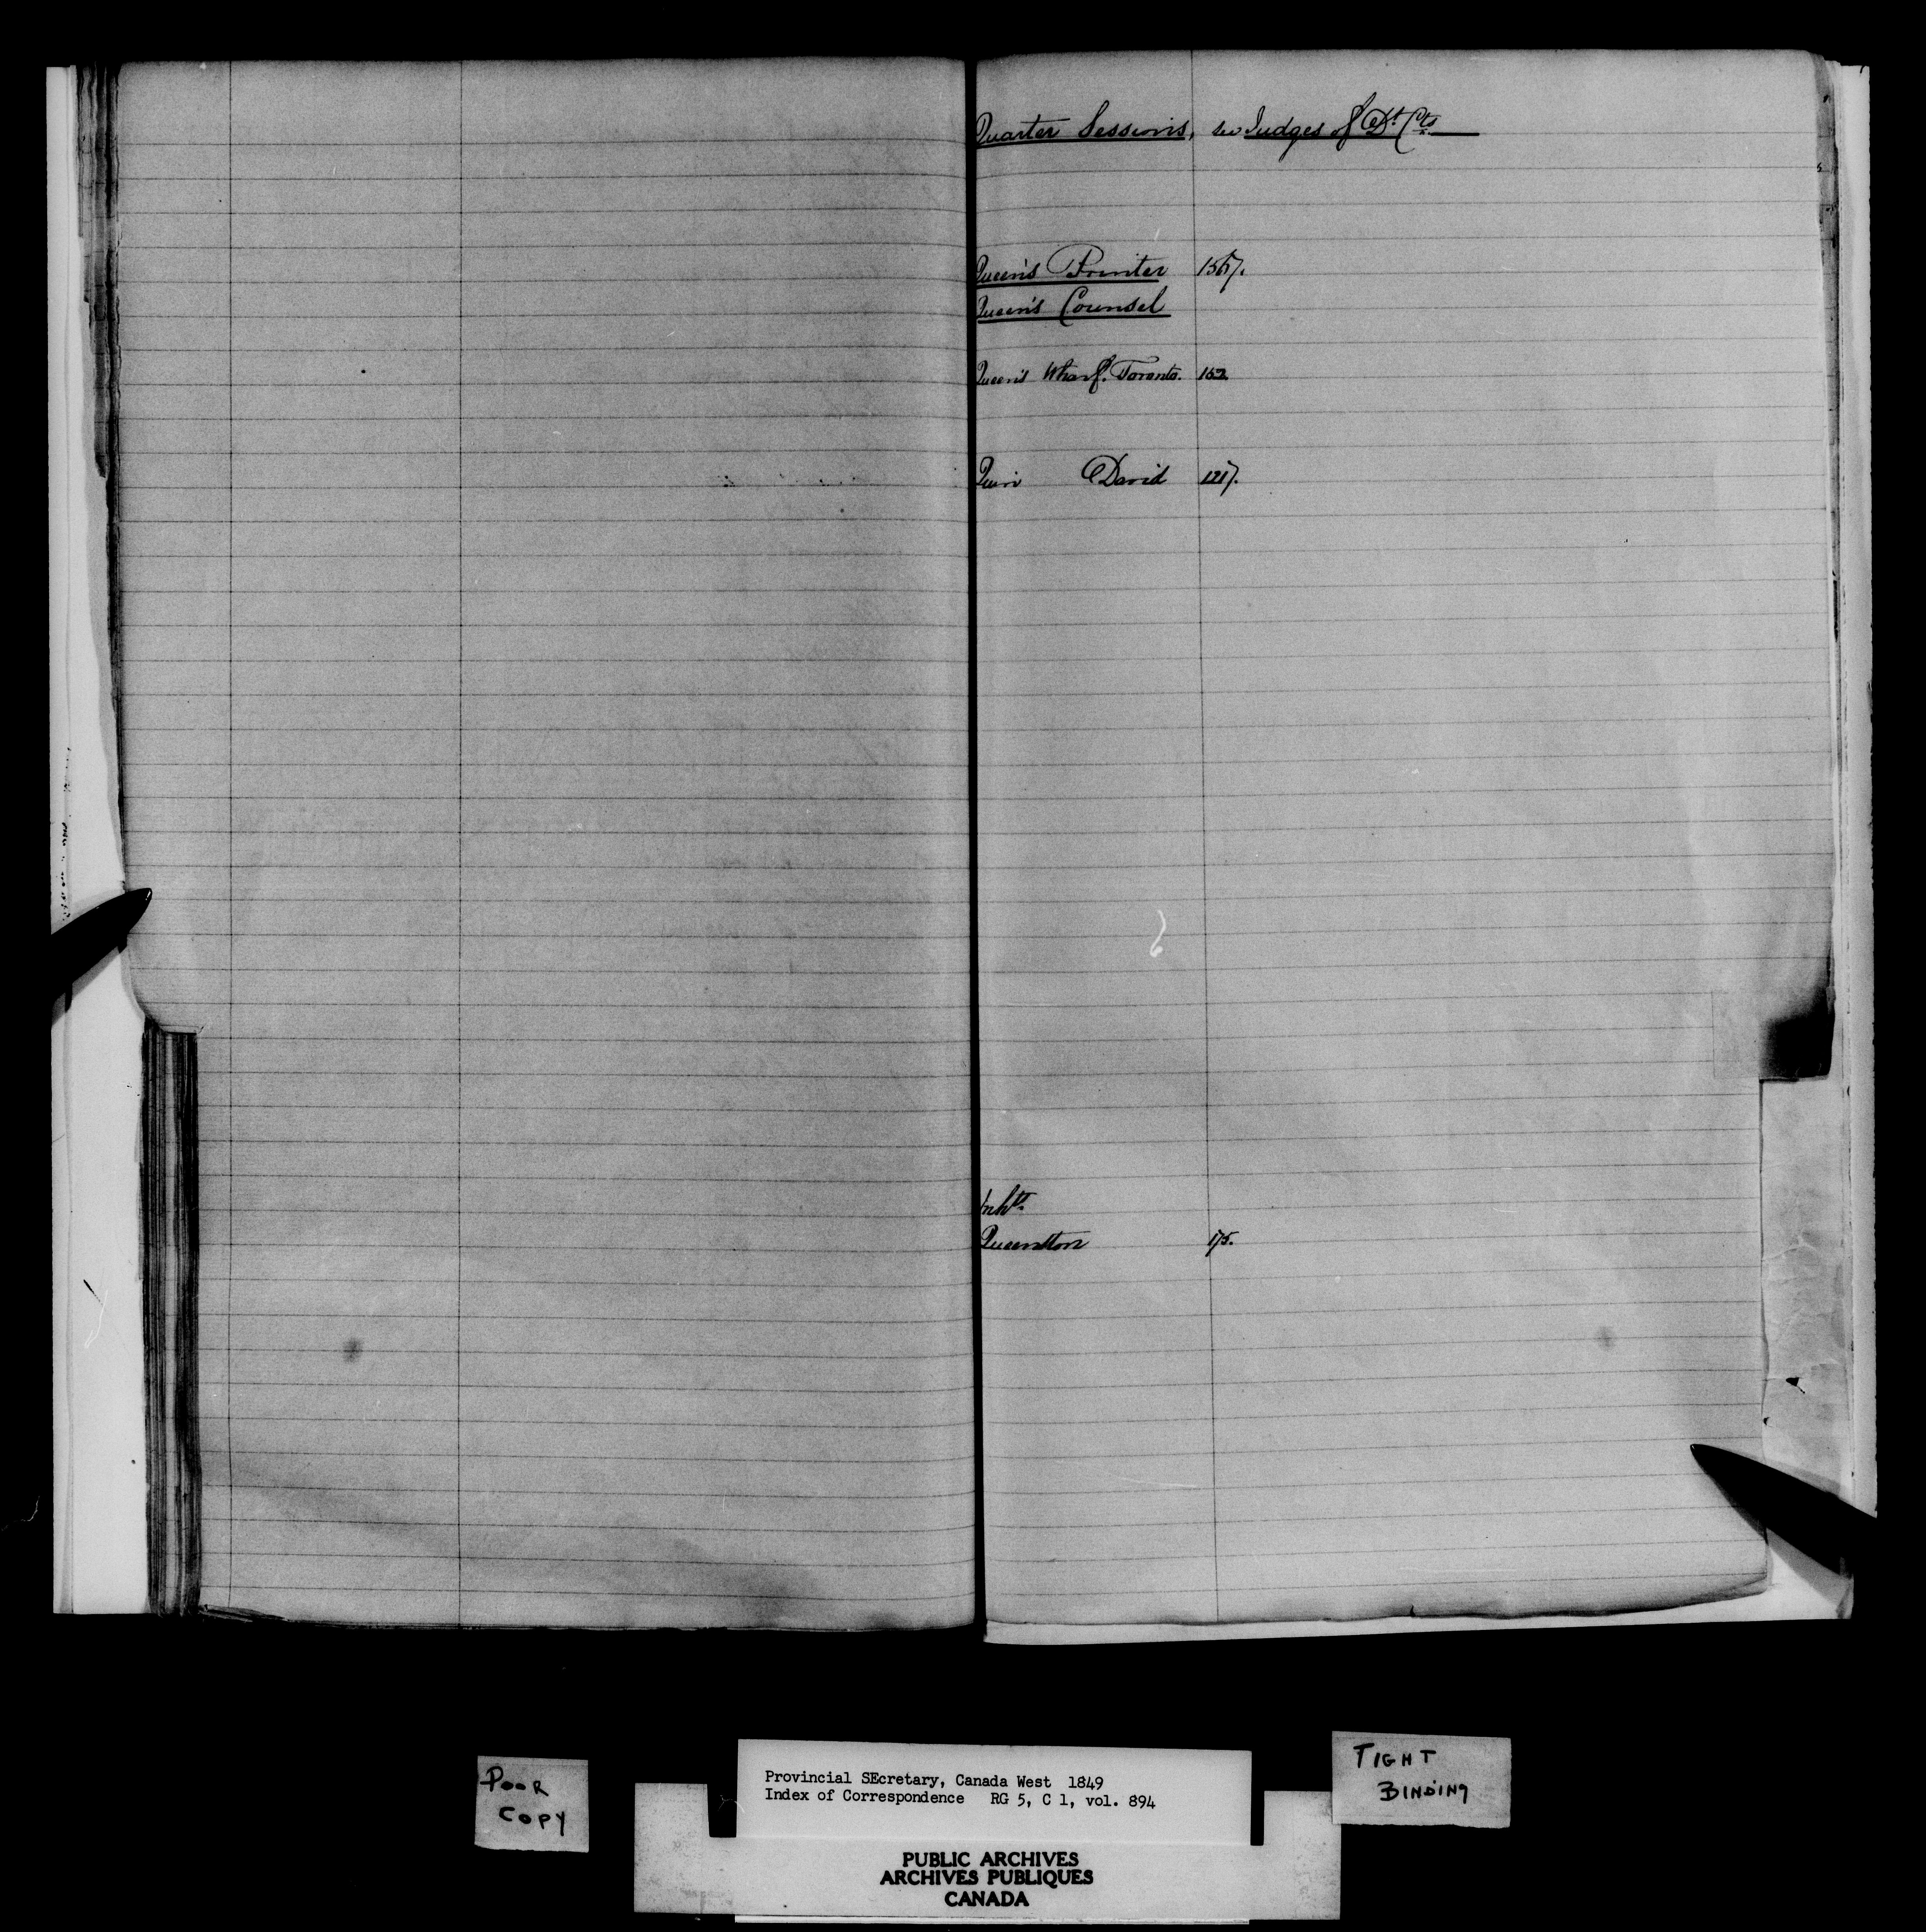 Quarter Sessions, see Judges of Dt. Cts
Queen's Printer 1567.
Queen's Counsel
Queen's Wharf. Toronto. 152
Quin David 1217.
Inhts.
Queenston 175.
POOR
COPY
Provincial SEcretary, Canada West 1849
Index of Correspondence RG 5, C 1, vol. 894
TIGHT
BINDING
PUBLIC ARCHIVES
ARCHIVES PUBLIQUES
CANADA